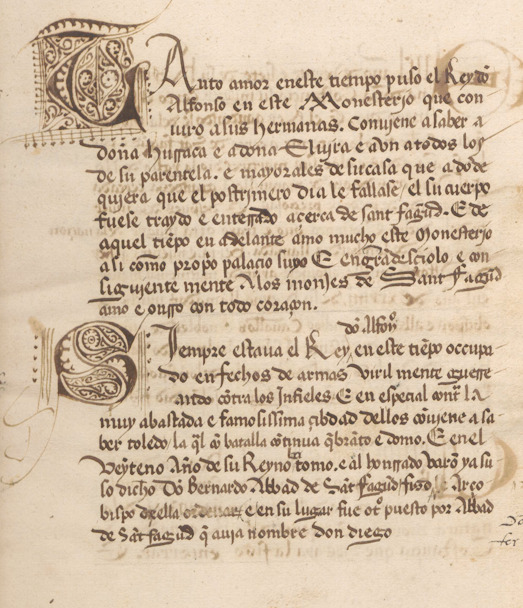 TAnto amor eneste tienpo puso el Rey dō
Alfonso en este Monesterio que con
iuro a sus hermanas. Conviene a saber a
doña hurraca e a dona Elvira e aun a todos los
de su parentela. e mayorales de su casa que a do de
quiera que el postrimero dia le fallase / el su cuerpo
fuese traydo e enterrado acerca de sant fagūd. E de
aquel tiēpo en adelante amo mucho este Monesterio
asi como propo palacio suyo E engrādesciolo e con
siguiente mente A los monjes de Sant Fagūd
amo e onrro con todo coraçon.
dō Alfoñ
SIempre estava el Rey, en este tiēpo occupa
do en fechos de armas Viril mente guerre
ando cōtra los Infieles E en especial contra la
muy abastada e famosissima çibdad dellos cōviene a sa
ber toledo / la q̄l cō batalla cōtinua q̄brāto e domo. E en el
Veyteno Año de su Reyno la tomo. e al honrrado varō ya su
so dicho Dō Bernardo Abbad de Sāt fagūd fizo le Arco
bispo della ordenar e en su lugar fue ot̄ puesto por Abbad
de Sāt fagūd q̄ avia nombre don diego